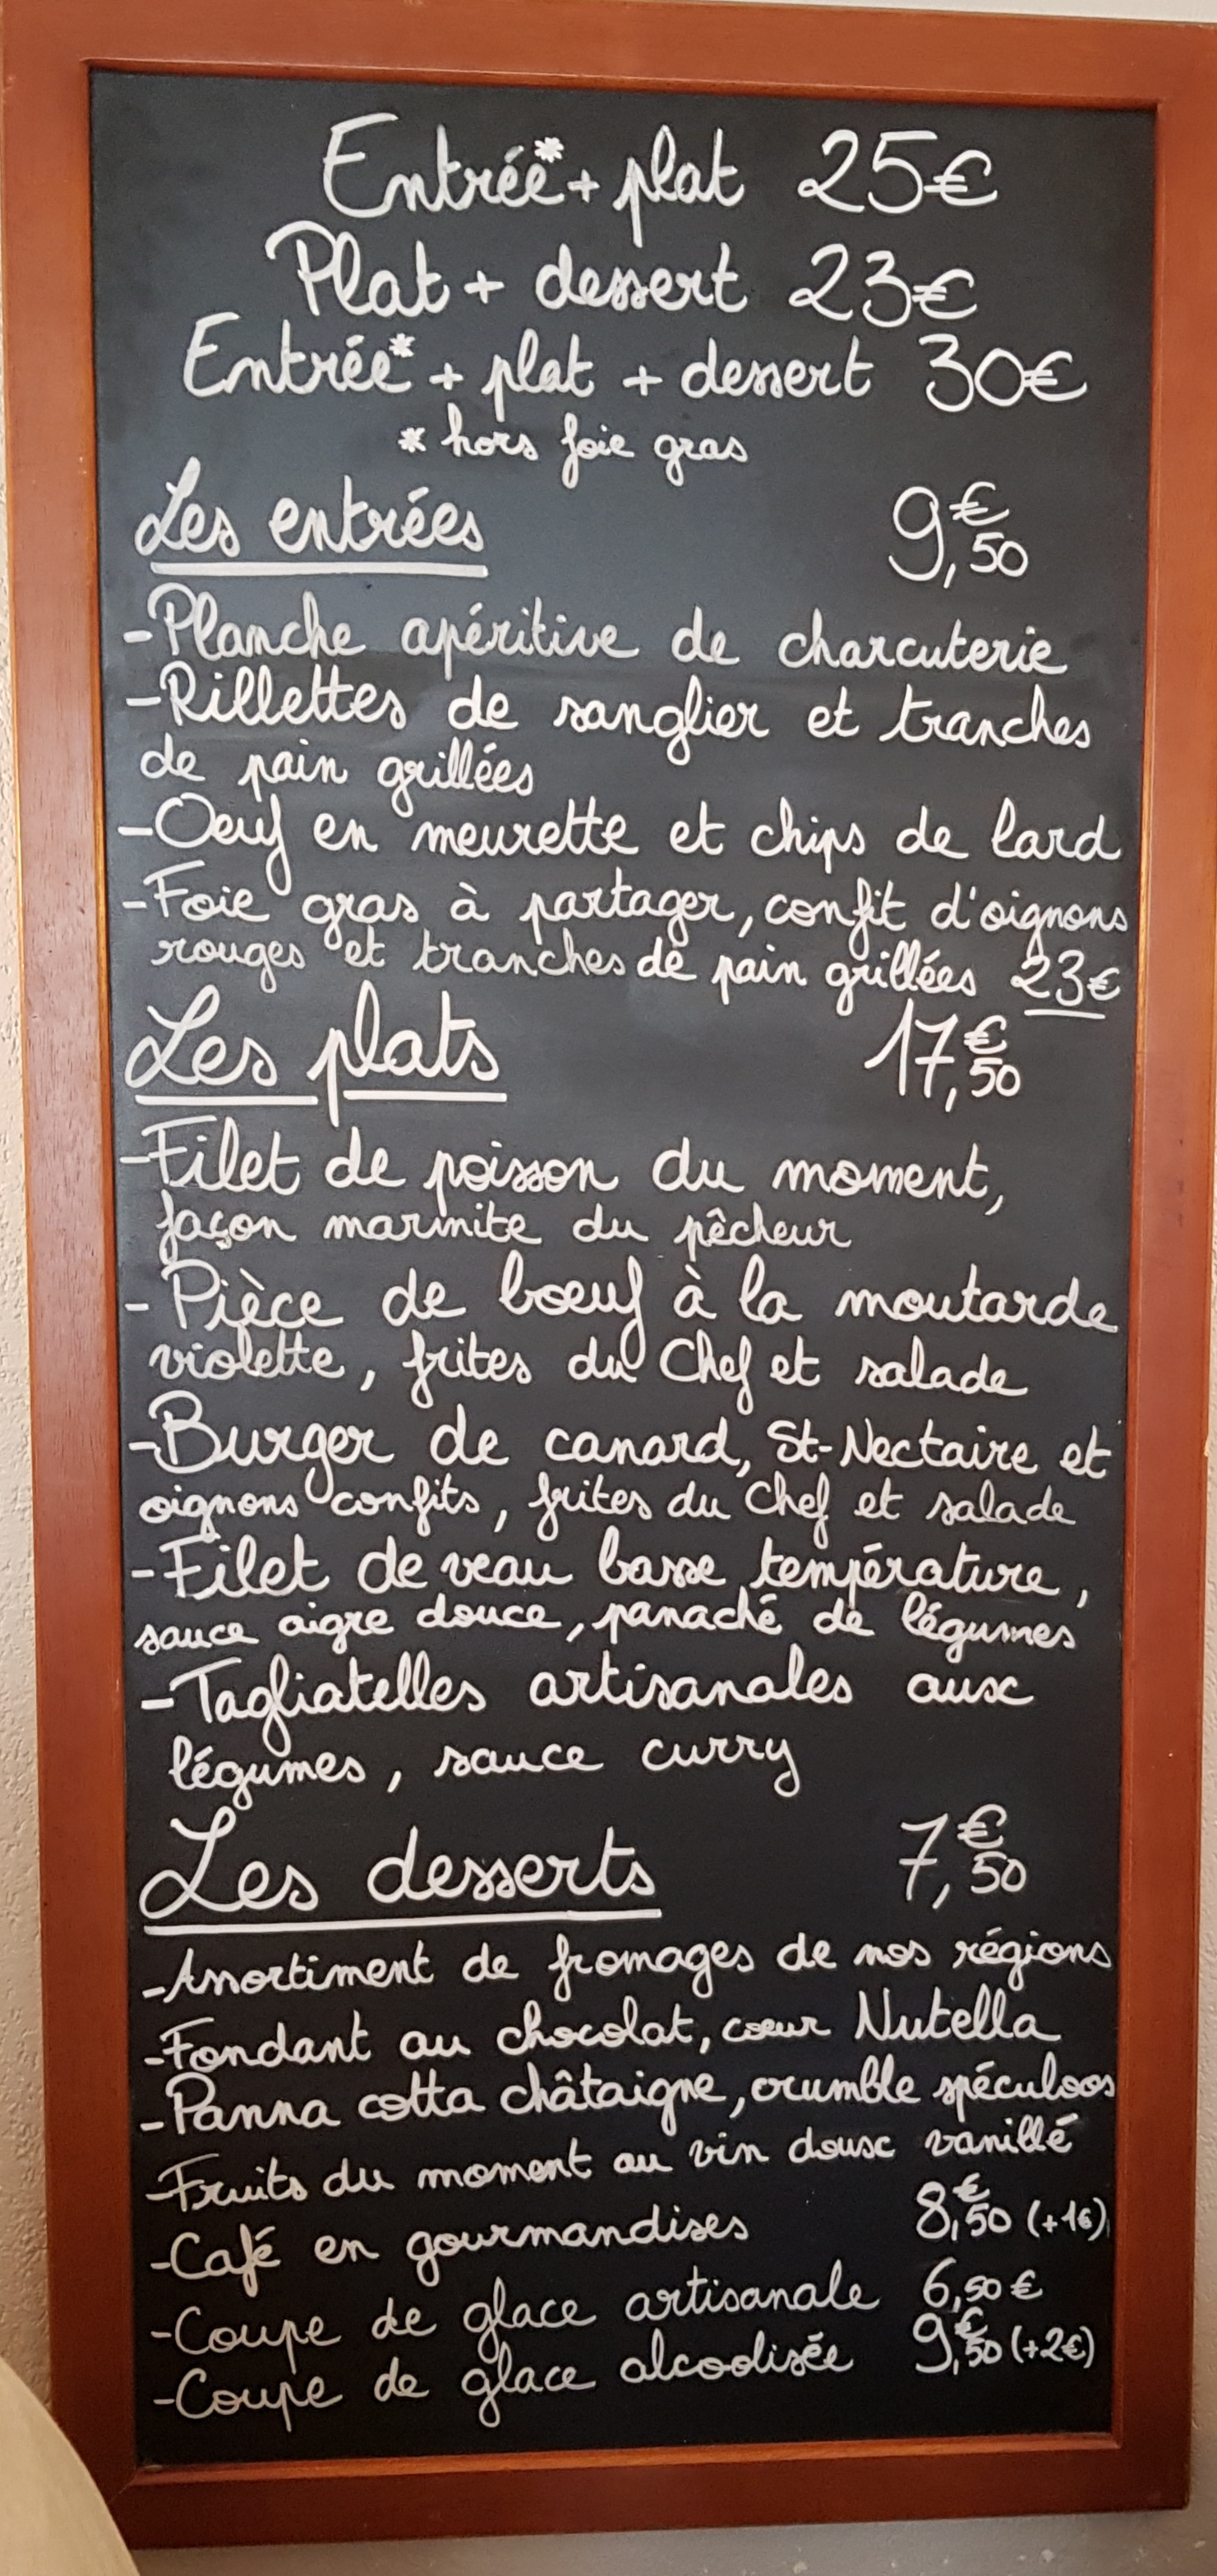 Entrée* + plat 25€
Plat + dessert 23€
Entrée* + plat + dessert 30€
* hors foie gras
Les entrées 9,€50
- Planche apéritive de charcuterie
- Rillettes de sanglier et tranches
de pain grillées
- Oeuf en meurette et chips de lard
- Foie gras à partager, confit d'oignons
rouges et tranches de pain grillées 23€
Les plats 17,€50
- Filet de poisson du moment,
façon marmite du pêcheur
- Pièce de bœuf à la moutarde
violette, frites du Chef et salade
- Burger de canard, St-Nectaire et
oignons confits, frites du Chef et salade
- Filet de veau basse température,
sauce aigre douce, panaché de légumes
- Tagliatelles artisanales aux
légumes, sauce curry
Les desserts 7,€50
- Assortiment de fromages de nos régions
- Fondant au chocolat, cœur Nutella
- Panna cotta châtaigne, crumble spéculoos
- Fruits du moment au vin doux vanillé
- Café en gourmandises 8,€50 (+1€)
- Coupe de glace artisanale 6,50€
- Coupe de glace alcoolisée 9,€50 (+2€)